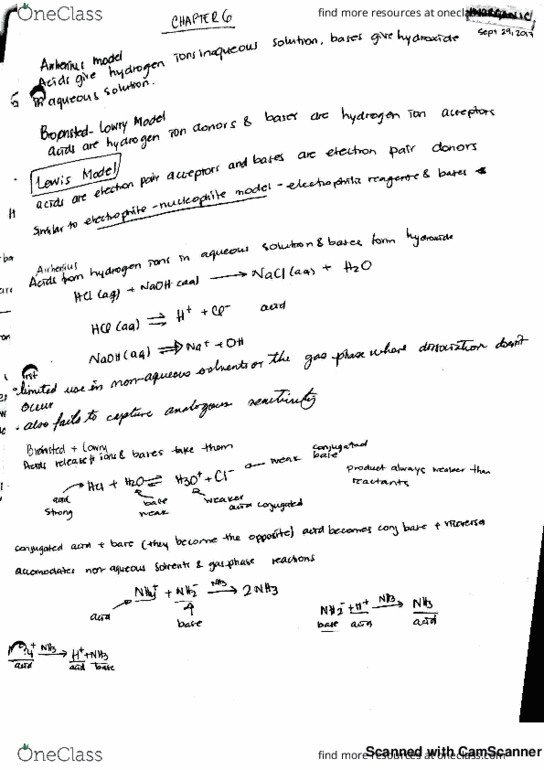 OneClass
find more resources at oneclass.com
INORGANIC
Sept 29, 2017
CHAPTER 6
Arrhenius model
Acids give hydrogen ions in aqueous solution, bases give hydroxide
in aqueous solution.
Bronsted-Lowry Model
acids are hydrogen ion donors & bases are hydrogen ion acceptors
Lewis Model
acids are electron pair acceptors and bases are electron pair donors
Similar to electrophile-nucleophile model - electrophilic reagents & bases
Arrhenius
Acids form hydrogen ions in aqueous solution & bases form hydroxide
HCl (aq) + NaOH (aq) → NaCl (aq) + H2O
HCl (aq) ⇌ H+ + Cl- acid
NaOH (aq) ⇌ Na+ + OH
- limited use in non-aqueous solvents or the gas phase where dissociation doesn't
occur
- also fails to capture analogous reactivity
Bronsted + Lowry
Acids release ions & bases take them
HCl + H2O ⇌ H3O+ + Cl- — weak conjugated base
acid strong
base weak
weaker acid conjugated
product always weaker than
reactants
conjugated acid + base (they become the opposite) acid becomes conj base + viceversa
accomodates non-aqueous solvents & gas-phase reactions
NH4+ + NH2- NH3→ 2NH3
acid
base
NH2- + H+ NH3→ NH3
base acid acid
NH3→ H+ + NH3
acid acid base
OneClass
find more resources at oneclass.com
Scanned with CamScanner